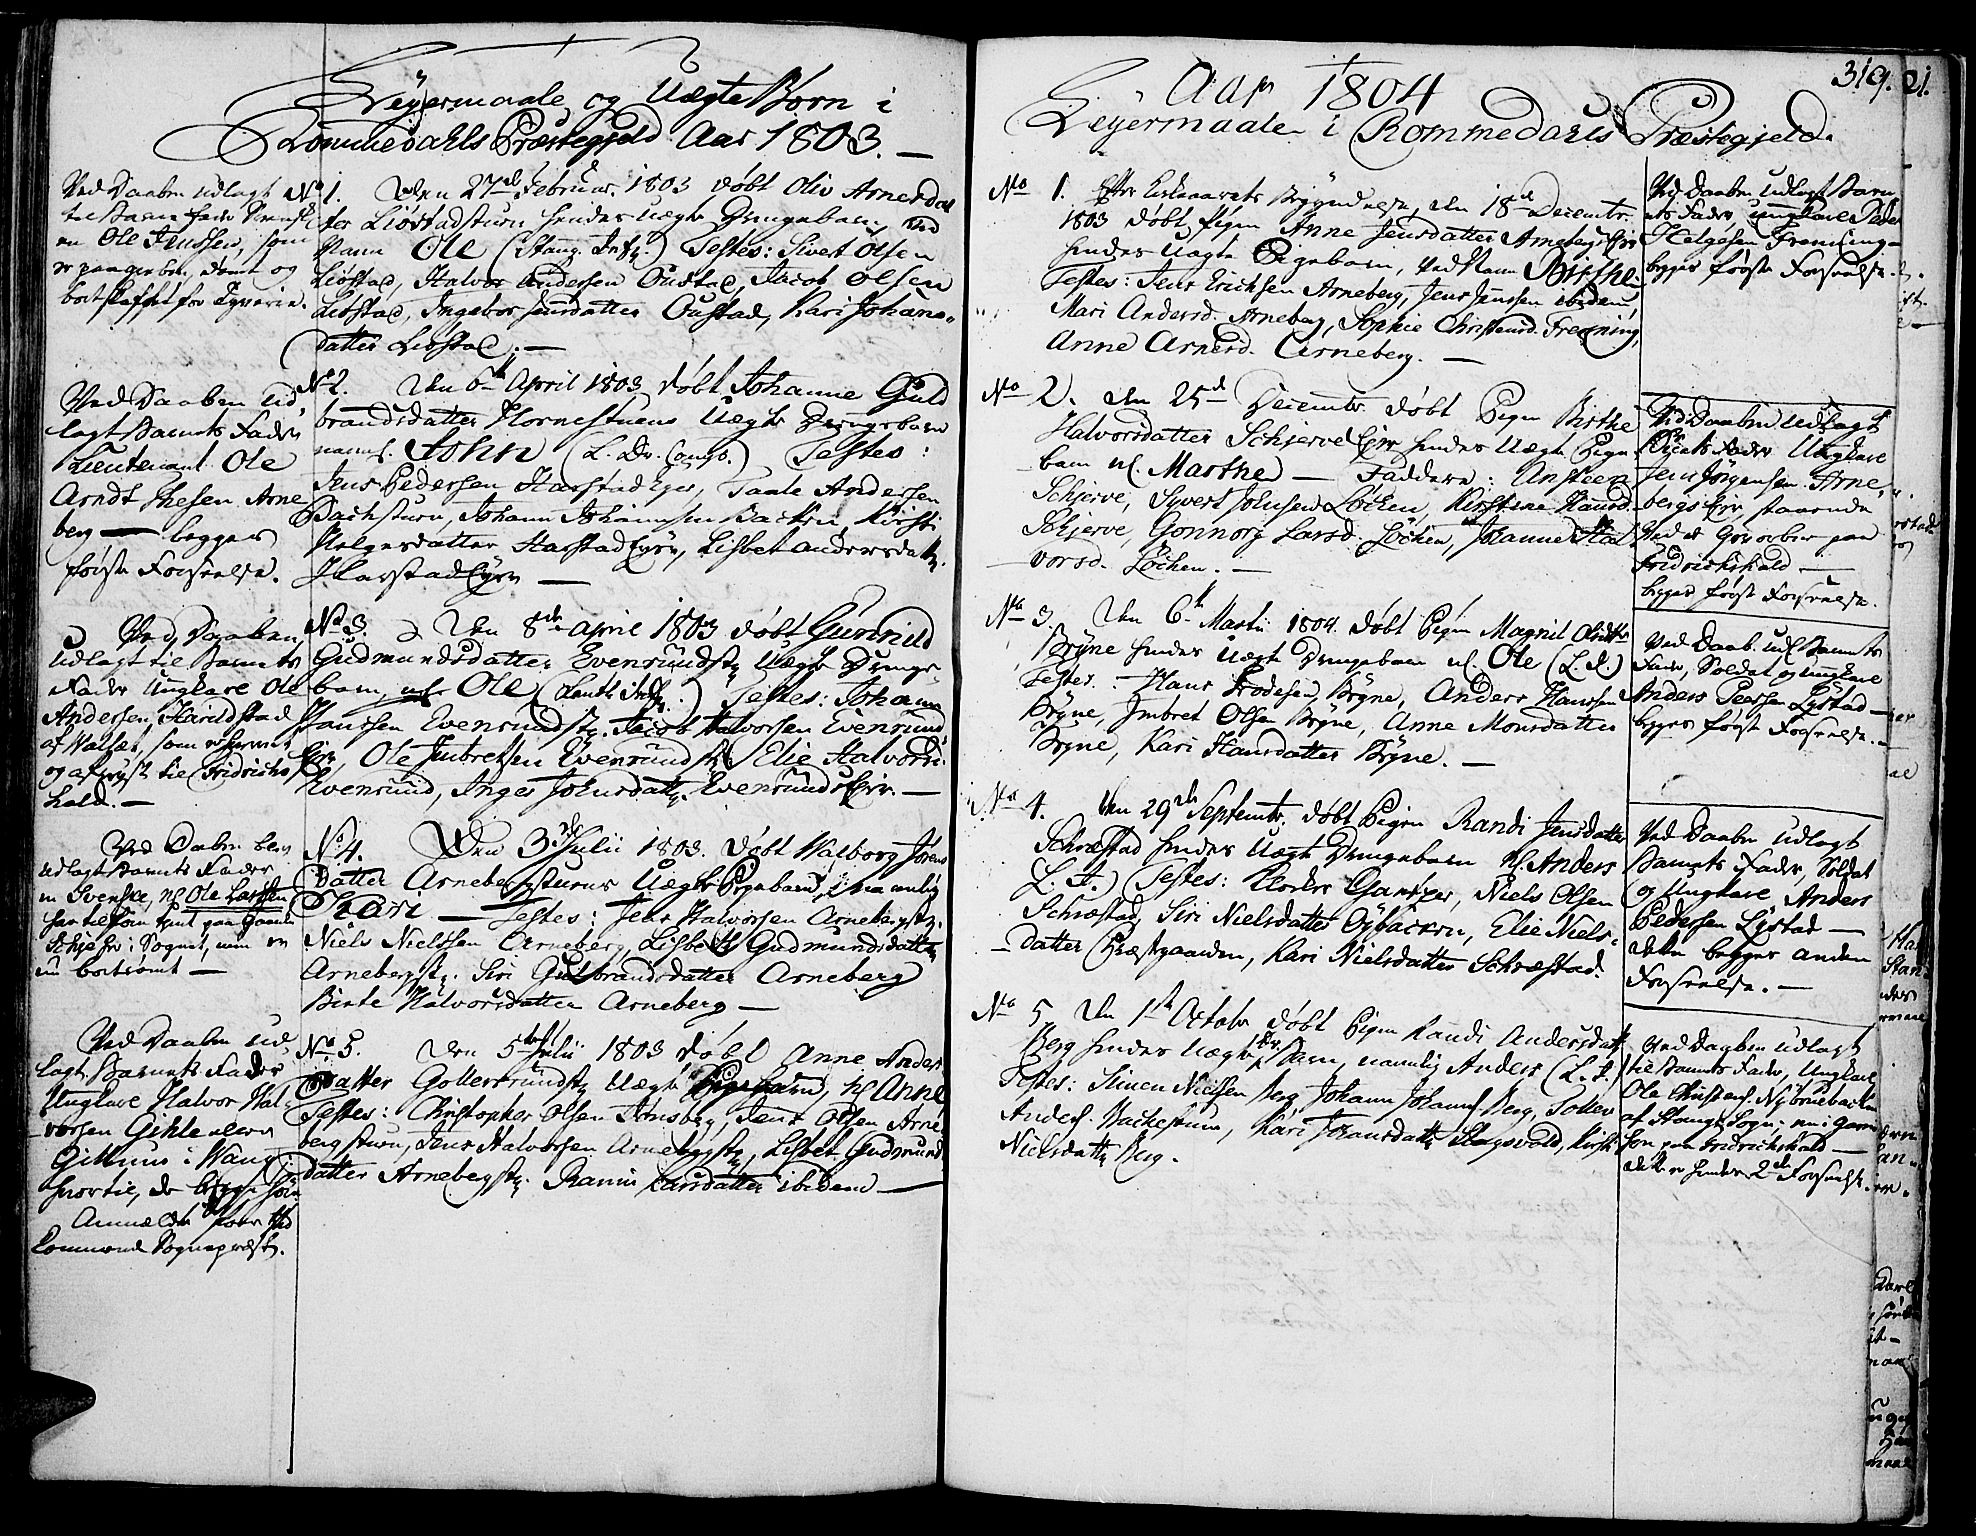 Leyermaale og Uægte Børn i
Rommedahls Præstegjeld Aar 1803.
Ved Daaben udlagt
til Barne Fader Svensk
en Ole Knudsen, som
er pangreben, dømt og
bortskaffet for Tyverie.
No 1. Den 27de Februar. 1803 døbt Oliv Arnesdat
ter Liøstadstuen hendes uægte Drengebarn, ved
Navn Ole (Stang. Inf.) Testes: Sivert Olsen
Liøstad, Halvor Andersen Oustad, Jacob Olsen
Liøstad, Ingebor Jensdatter Oustad, Kari Johans-
datter Liøstad. —
Ved Daaben ud,
lagt Barnets Fader
Lieutenant Ole
Arndt Thesen Arne
berg — begges
første Forseelse.
No 2. Den 6te April 1803 døbt Johanne Guld
brandsdatter Hornestuens Uægte Drengebarn
navnl. John (L. Dr. Comp.) Testes:
Jens Pedersen HarstadEger, Paale Andersen
Bachstuen, Johann Johannsen Backen, Kirsti
Helgesdatter HarstadEyer, Lisbet Andersdatt.
HarstadEyer —
Ved Daaben
udlagt til Barnets
Fader Ungkarl Ole
Andersen Harildstad
af Valset, som er hverve
og afreyst til Fridrichs
hald. —
No 3. Den 8de April 1803 døbt Gunnild
Gudmundsdatter Evensrundst. Uægte Drenge
barn, nl. Ole Testes: Johann
Hanssen Evensrundst. Jacob Halvorsen Evensrund
Eyer, Ole Imbretsen Evensrundst. Elie Halvorsd.
Evensrund, Inger Johnsdatt. EvensrundsEyer. —
Ved Daaben blev
udlagt Barnets Fader
en Svenske, nl. Ole Larsen
her til som tient paa Gaarden
Schjefre i Sognet, men er
nu bortrømt —
No 4. Den 3de Julii 1803. døbt Walborg Jøns
datter Arnebergstuens Uægte Pigebarn, navnlig
Kari — Testes: Jens Halvorsen Arnebergst.
Niels Nielssen Arneberg, Lisbeth Gudmundsdatter
Arnebergst. Siri Gulbrandsdatter Arneberg
Birte Halvorsdatter Arneberg —
Ved Daaben ud,
lagt Barnets Fader
Ungkarl Halvor Hal-
vorsen Gihle eller
Gillund i Wang
Annældt for Ved
kommende Sognepræst.
No 5. Den 5te Julii 1803 døbt Anne Anders
datter Gollersrundst. Uægte Pigebarn, nl. Anne
Testes: Christopher Olsen Arneberg, Jens Olsen Arne
bergstuen, Jens Halvorsen Arnebergst, Lisbet Gudmund
datter Arnebergst. Ranni Larsdatter ibidem —
319. 21.
Aar 1804
Leyermaalen i Rommedahls Præstegjeld.
No 1. Efter Kirkeaarets Begyndelse, den 18de Decembr.
1803 døbt Pigen Anne Jensdatter ArnebergsEjer
hendes Uægte Pigebarn, ved Navn Birthe
Testes: Jens Erichsen Arneberg, Jens Jenssen ibidem,
Mari Andersd. Arneberg, Sophie Christensd. Frenning,
Anne Arnesd. Arneberg. —
Ved Daaben udlagt Barn
ets Fader, Ungkarl Peder
Helgesen Frenning-
begges første Forseelse.
No 2. Den 25de Decembr. døbt Pigen Birthe
Halvorsdatter SchjerveEjer hendes Uægte Pige
barn nl. Marthe — Faddere: Ansteen
Schjerve, Syvert Johnsen Løcken, Kirstine Hansd.
Schjerve, Gonnorg Larsd. Løchen, Johanne Hal
vorsd. Løchen. —
Ved Daaben udlagt
Barnets Fader Ungkarl
Jens Jørgensen Arne,
bergsEjer staaende
ved et Gevorben paa
Fridrichshald —
begges første Forseelse.
No 3. Den 6te Martii 1804. døbt Pigen Magnil Olsdatter
Bryne hendes Uægte Drengebarn nl. Ole (L. D.)
Testes. — Hans Frodesen Bryne, Anders Hanssen
Bryne, Imbret Olsen Bryne, Anne Monsdatter
Bryne, Kari Hansdatter Bryne. —
Ved Daab. udl. Barnets
Fader, Soldat og Ungkarl
Anders Peersen Lystad —
begges første Forseelse. —
No 4. Den 29de Septembr. døbt Pigen Randi Jensdatter
Schræstad hendes Uægte Drengebarn nl. Anders
(L. D.) Testes: Klocker Gantzer, Niels Olsen
Schræstad, Siri Nielsdatter Oybacken, Elie Niels-
datter Præstgaarden, Kari Nielsdatter Schræstad.
Ved Daaben udlagt
Barnets Fader, Soldat
og Ungkarl, Anders
Pedersen Lystad —
dette begges anden
Forseelse. —
No 5 Den 1te Octobr døbt Pigen Randi Andersdatt.
Berg hendes Uægte Barn, navnlig Anders (L. D.)
Testes: Simen Nielsen Berg Johann Johanns. Berg, Tosten
Anders. Backestuen, Kari Johansdatt. Stagsvold, Kirsti
Nielsdatt. Berg.
Ved Daaben udlagt
til Barnets Fader, Ungkarl
Ole Christens. Nybruebacken
af Stange Sogn; nu i Garni
son paa Fredrichshald —
dette er hendes 2den Forseelse.